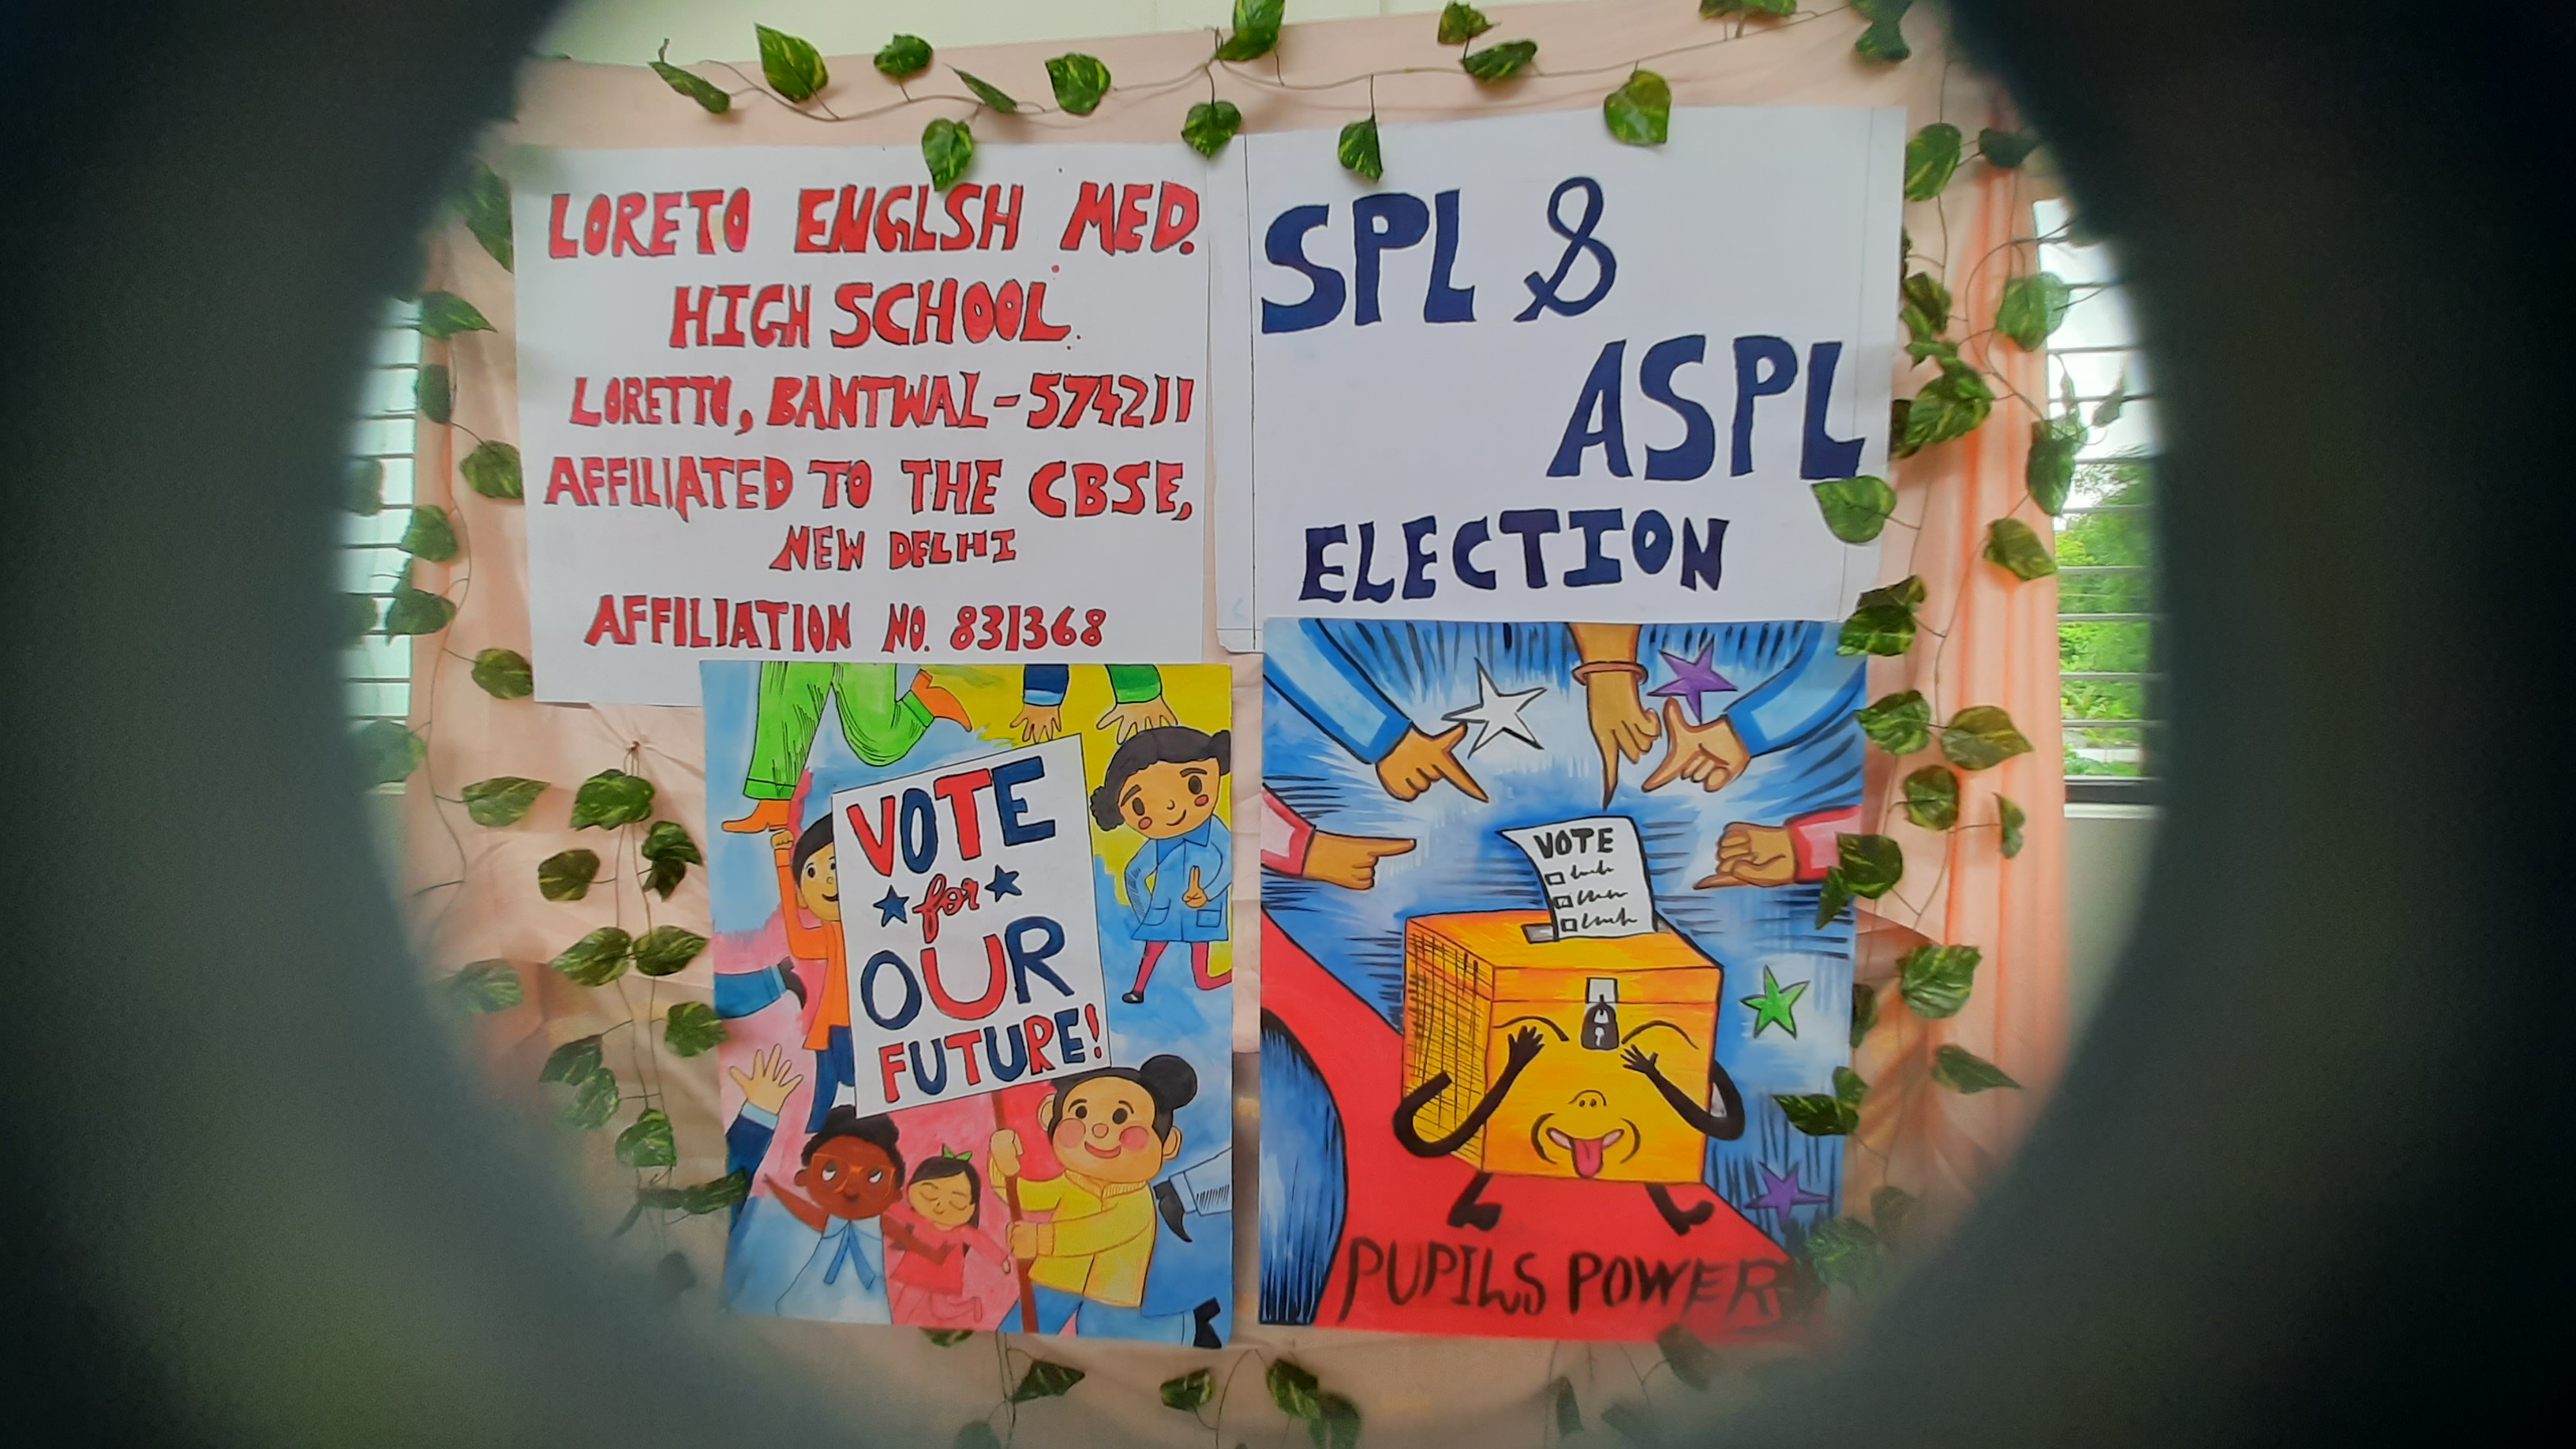 LORETO ENGLSH MED.
HIGH SCHOOL
LORETTO, BANTWAL-574211
AFFILIATED TO THE CBSE,
NEW DELHI
AFFILIATION NO. 831368
SPL &
ASPL
ELECTION
VOTE
for
OUR
FUTURE!
VOTE
PUPILS POWER